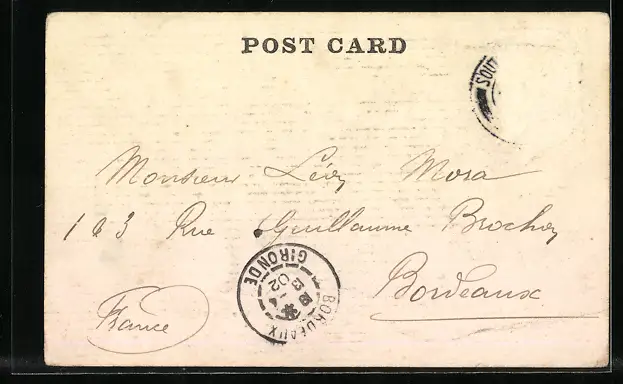 POST CARD
SOUT
Monsieur Léon Mora
163 Rue Guillaume Brochon
Bordeaux
France
BORDEAUX
GIRONDE
02